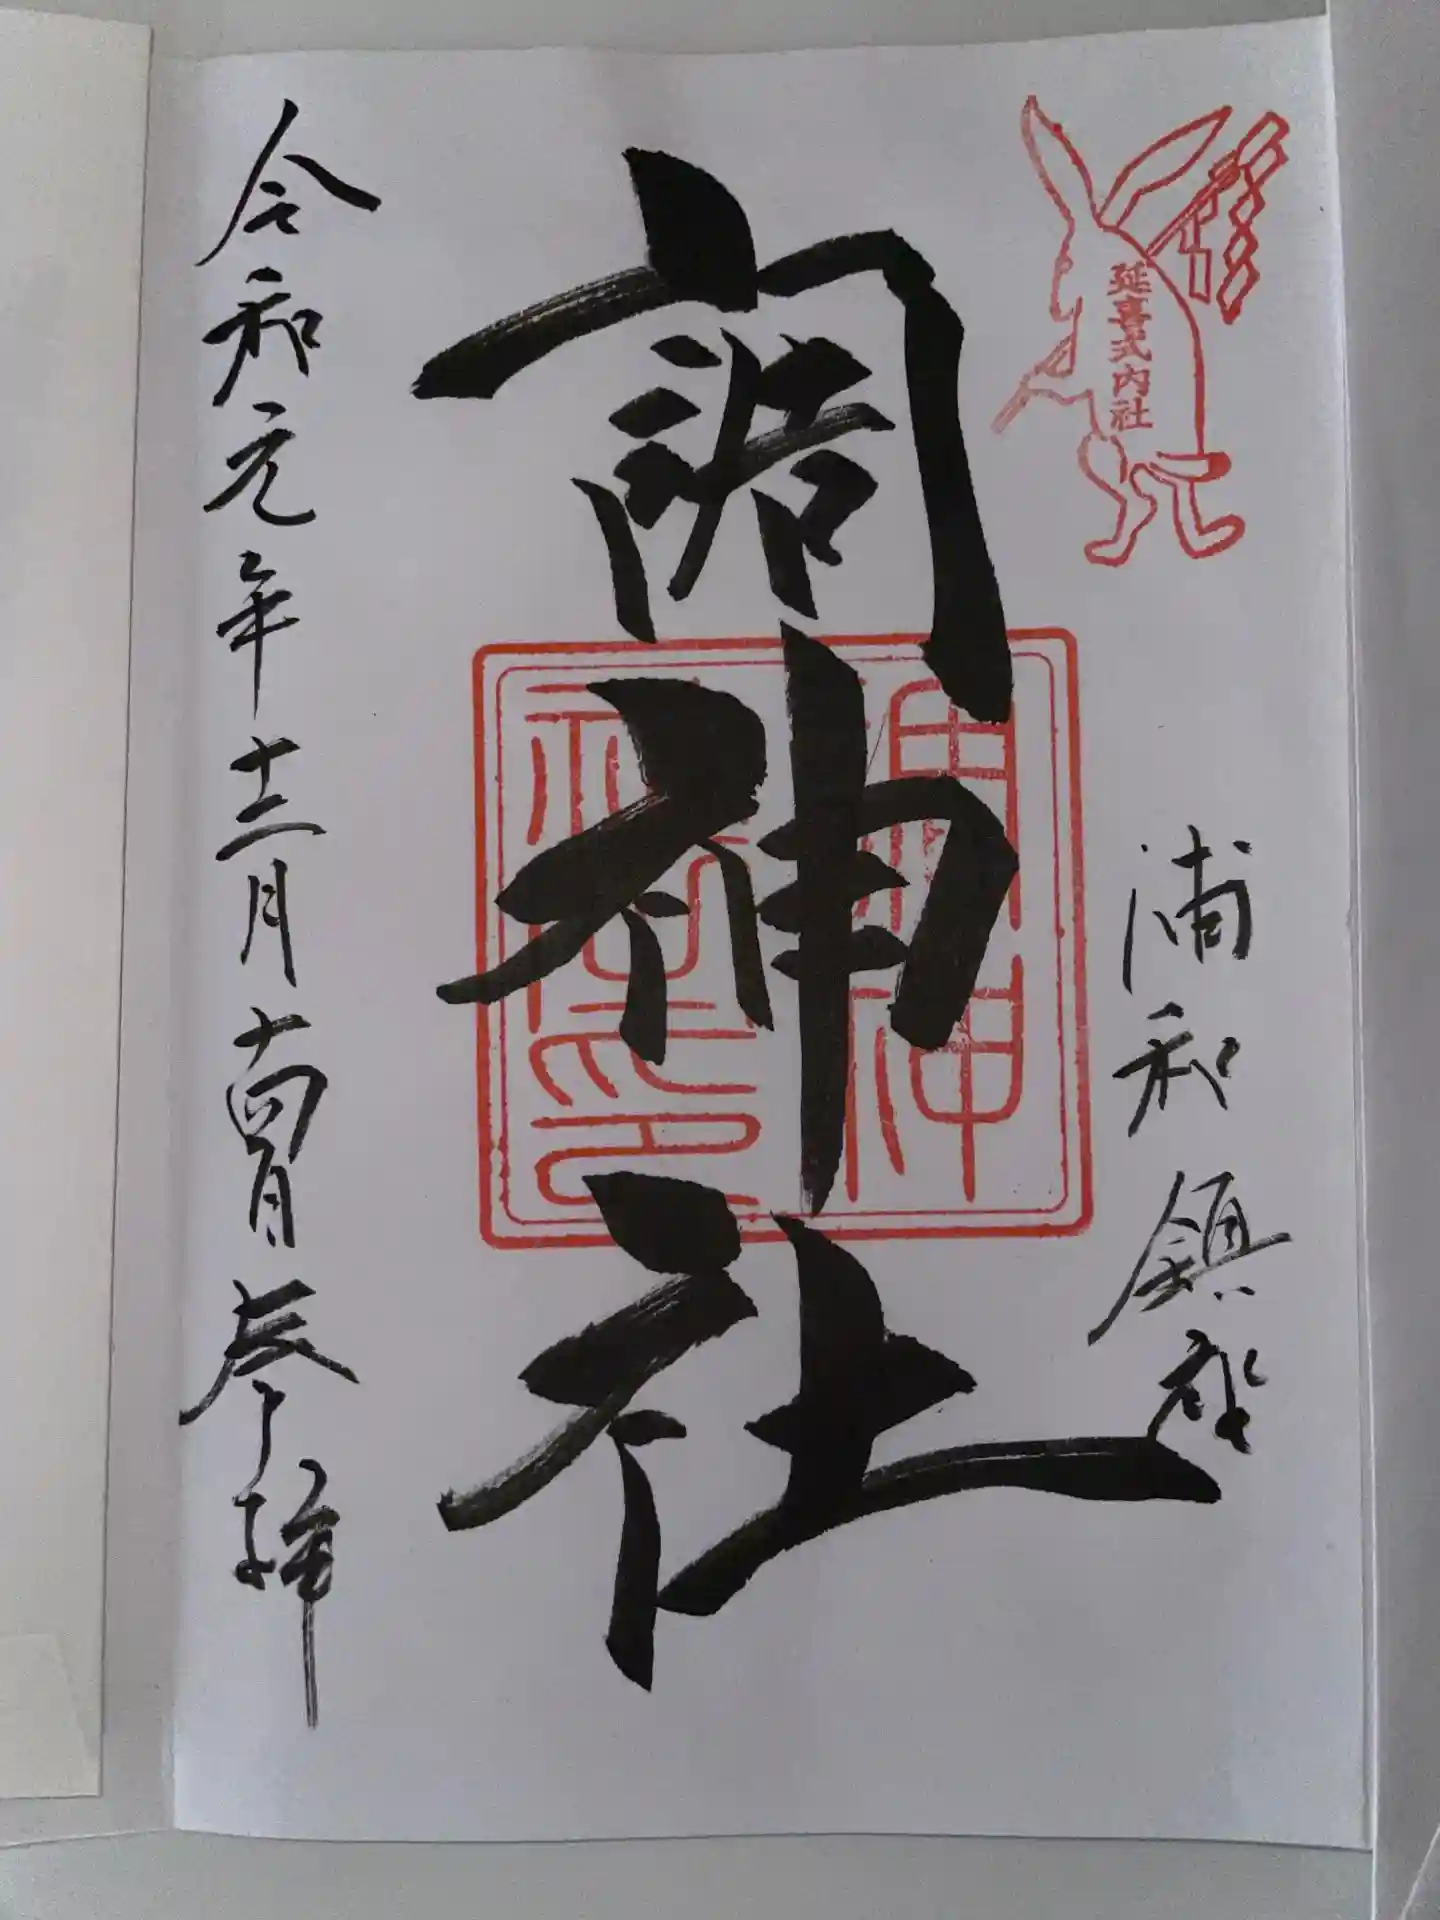 延喜式内社
浦和鎮座
調神社
調神社之印
令和元年十二月十四日参拝